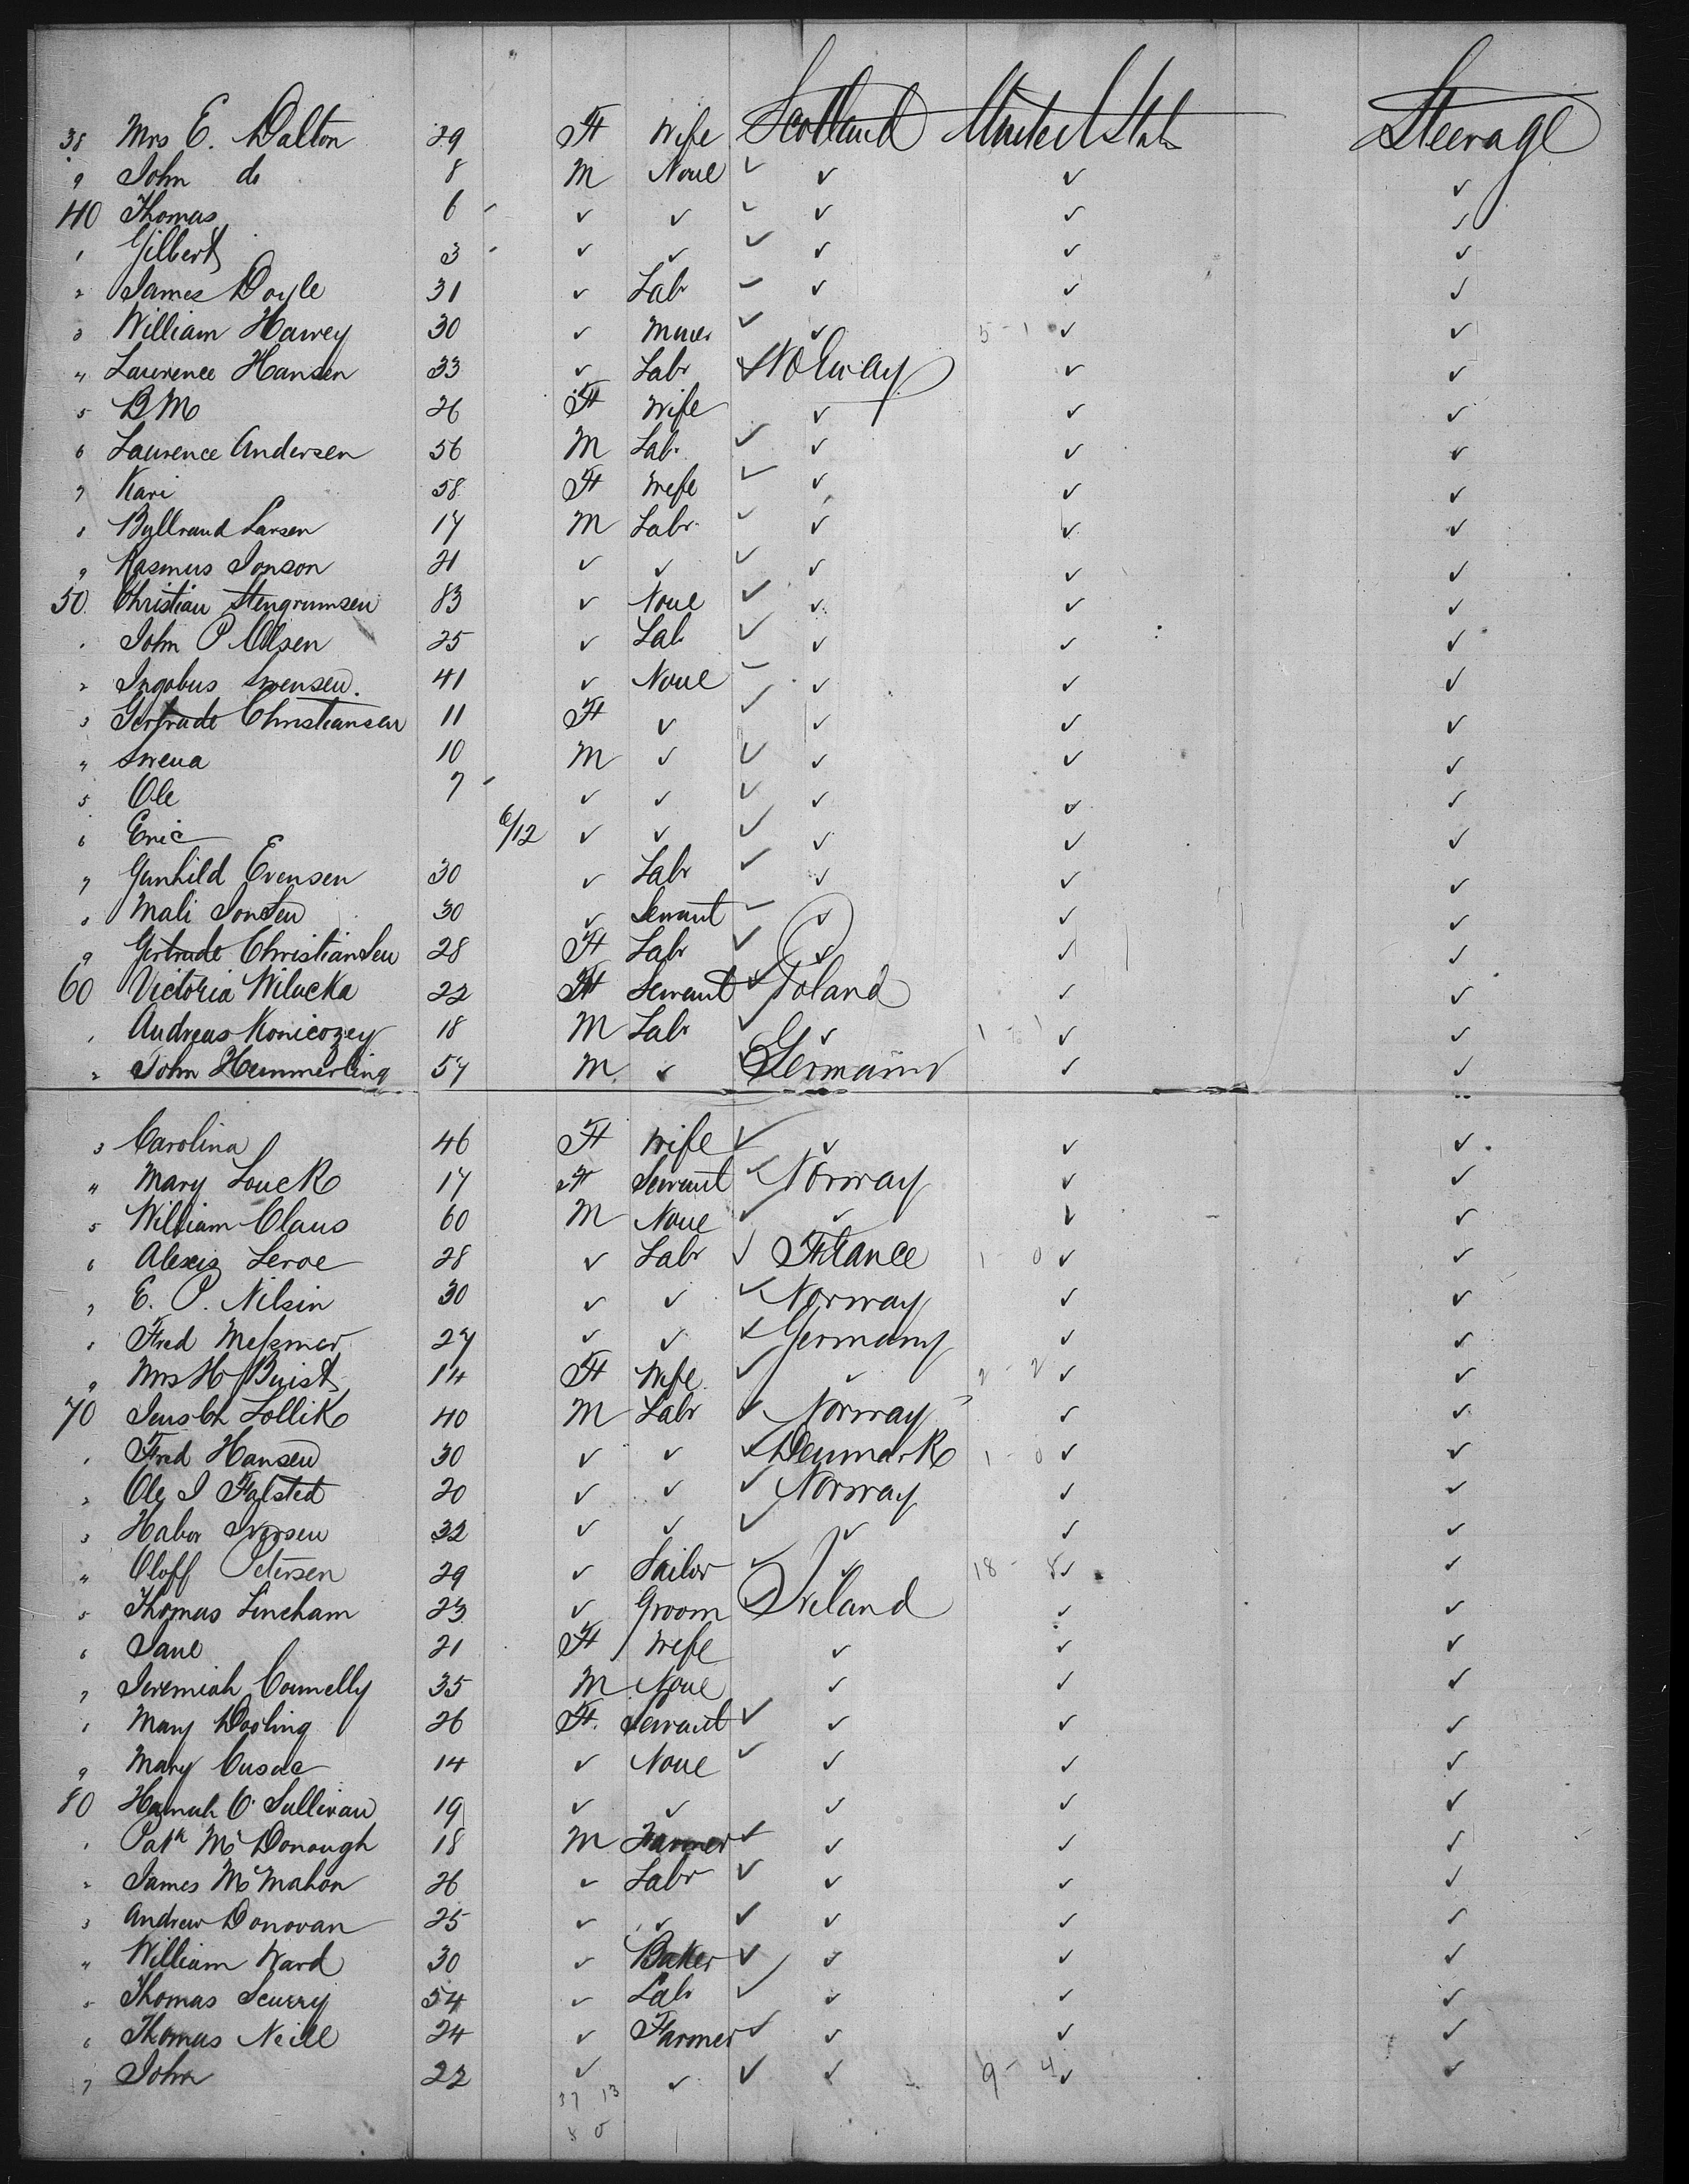 38 Mrs E. Dalton 29 F Wife Scotland United Stat Steerage
9 John do 8 M None ✓ ✓ ✓ ✓
40 Thomas 6 ✓ ✓ ✓ ✓ ✓ ✓
1 Gilbert 3 ✓ ✓ ✓ ✓ ✓ ✓
2 James Doyle 31 ✓ Labr ✓ ✓ ✓ ✓
3 William Harvey 30 ✓ Miner ✓ ✓ 5 - 1 ✓ ✓
4 Laurence Hansen 33 ✓ Labr ✓ Norway ✓ ✓
5 BM 26 F Wife ✓ ✓ ✓
6 Laurence Andersen 56 M Lab. ✓ ✓ ✓ ✓
7 Kari 58 F Wife ✓ ✓ ✓ ✓
8 Larsen 17 M Labr ✓ ✓ ✓ ✓
9 Rasmus Jonson 21 ✓ ✓ ✓ ✓ ✓ ✓
50 Christian Stengrumsen 83 ✓ None ✓ ✓ ✓ ✓
John P Olsen 25 ✓ Lab ✓ ✓ ✓ ✓
2 Ingobus Swensen. 41 ✓ None ✓ ✓ ✓ ✓
3 Gertrude Christiansen 11 F ✓ ✓ ✓ ✓ ✓
4 Swena 10 M ✓ ✓ ✓ ✓ ✓
5 Ole 7 ✓ ✓ ✓ ✓ ✓ ✓
6 Eric 6/12 ✓ ✓ ✓ ✓ ✓ ✓
7 Gunhild Evensen 30 ✓ Labr ✓ ✓ ✓ ✓
8 Mali Jonsen 30 ✓ Servant ✓ ✓ ✓ ✓
9 Gertrude Christiansen 28 F Labr ✓ ✓ ✓ ✓
60 Victoria Wilucka 22 F Servant ✓ Poland ✓ ✓
Andreas Konicozey 18 M Labr ✓ ✓ ✓ ✓
2 John Hemmerling 57 M ✓ ✓ Germany ✓ ✓
3 Carolina 46 F Wife ✓ ✓ ✓ ✓
4 Mary Louck 17 F Servant ✓ Norway ✓ ✓
5 William Claus 60 M None ✓ ✓ ✓ ✓
6 Alexis Leroe 28 ✓ Labr ✓ France 1 0 ✓ ✓
7 E. P. Nilsin 30 ✓ ✓ ✓ Norway ✓ ✓
8 Fred 27 ✓ ✓ ✓ Germany ✓ ✓
9 Mrs H Buist 14 F Wife ✓ ✓ 2 - 2 ✓ ✓
70 Jens Ch Lollik 40 M Labr ✓ Norway ✓ ✓
Fred Hansen 30 ✓ ✓ ✓ Denmark 1 - 0 ✓ ✓
2 Ole I Falsted 20 ✓ ✓ ✓ Norway ✓ ✓
3 Habor Iversen 32 ✓ ✓ ✓ ✓ ✓ ✓
4 Oloff Petersen 29 ✓ Sailor ✓ ✓ 18 - 8 ✓ ✓
5 Thomas Lincham 23 ✓ Groom Ireland ✓ ✓
6 Jane 21 F Wife ✓ ✓ ✓
7 Jeremiah Connelly 35 M None ✓ ✓ ✓
8 Mary Dooling 26 F. Servant ✓ ✓ ✓ ✓
9 Mary Cusac 14 ✓ None ✓ ✓ ✓ ✓
80 Hannah O'Sullivan 19 ✓ ✓ ✓ ✓ ✓
Patk McDonough 18 M Farmer ✓ ✓ ✓ ✓
2 James McMahon 26 ✓ Labr ✓ ✓ ✓ ✓
3 Andrew Donovan 25 ✓ ✓ ✓ ✓ ✓ ✓
4 William Ward 30 ✓ Baker ✓ ✓ ✓ ✓
5 Thomas Scurry 54 ✓ Labr ✓ ✓ ✓ ✓
6 Thomas Neill 24 ✓ Farmer ✓ ✓ ✓ ✓
7 John 22 ✓ ✓ ✓ ✓ 9 - 4 ✓ ✓
37 13